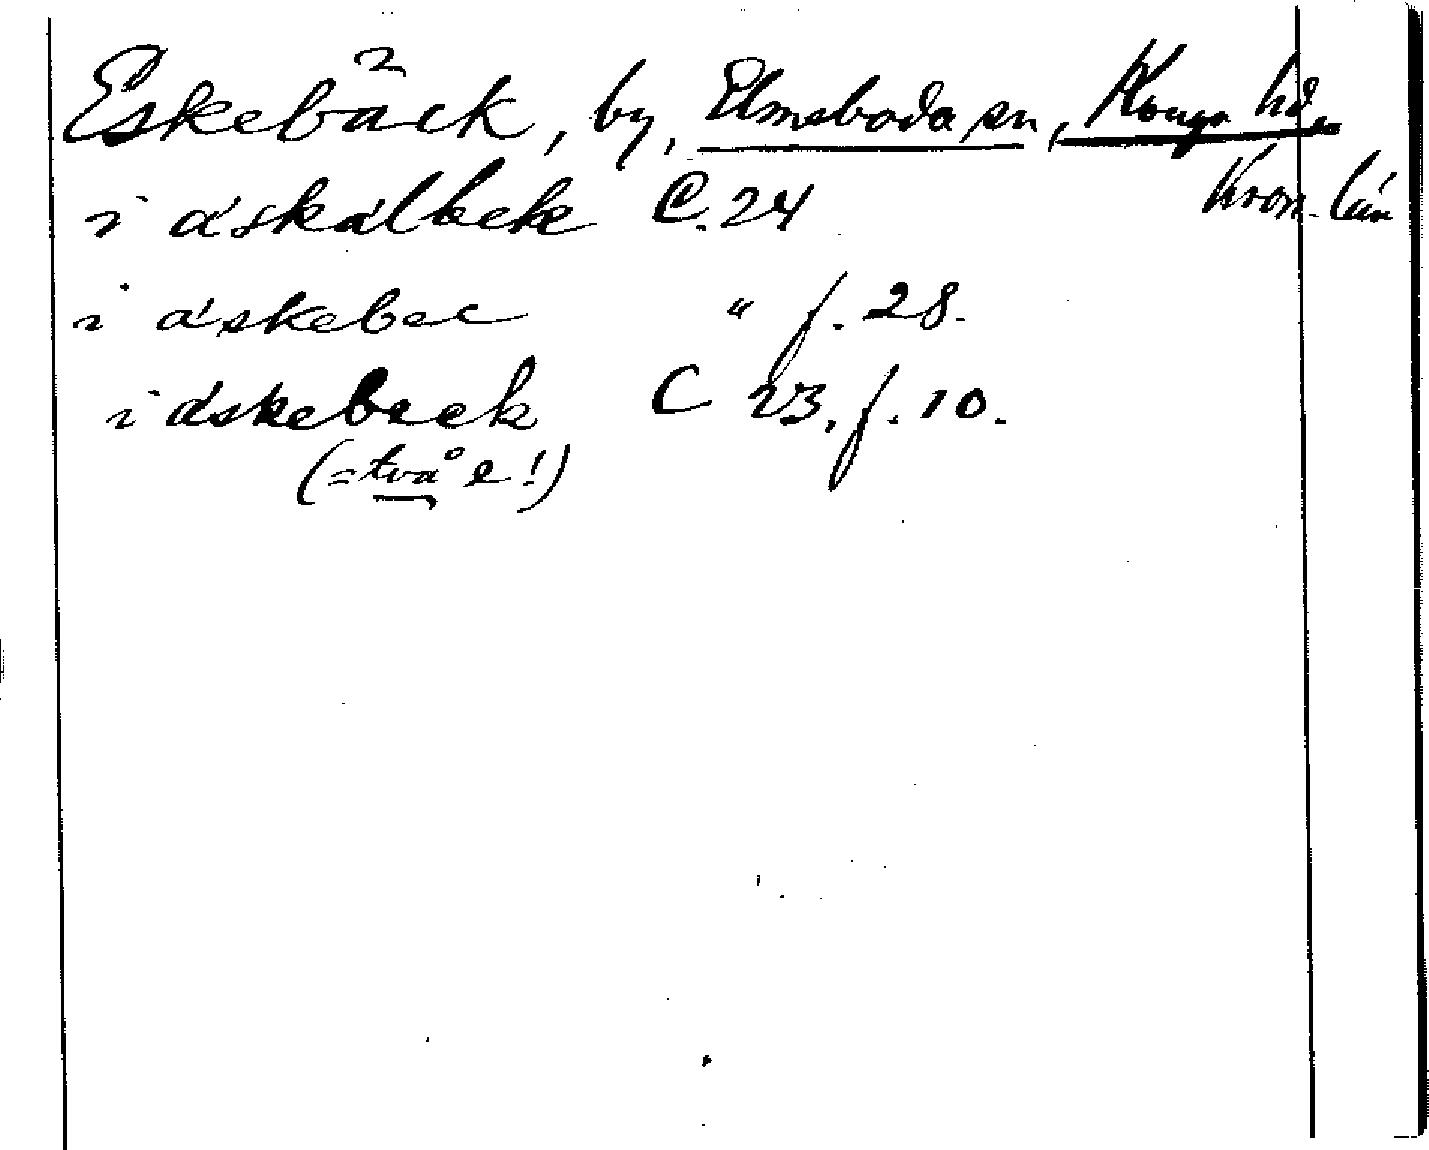 Eskebäck, by, Elmeboda sn, Konga hd,
Kron. län
i áskálbek C. 24
i áskebec " f. 28.
i áskebeek C 23, f. 10.
(= två e!)